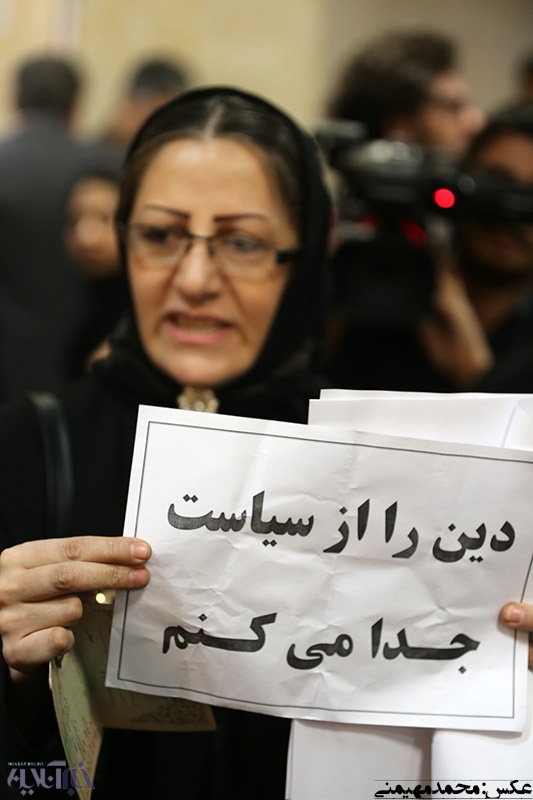 دین را از سیاست
جدا می کنم
خبرآنلاین
عکس:محمدمهیمنی